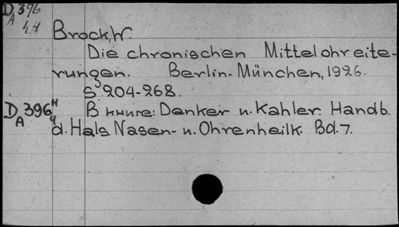 D 396
A 44
Brock, W.
Die chronischen Mittelohreite-
rungen. Berlin-München, 1926.
S 204-268.
D 396 H
A 4
В книге: Denker u. Kahler. Handb.
d. Hals Nasen- u. Ohrenheilk. Bd. 7.